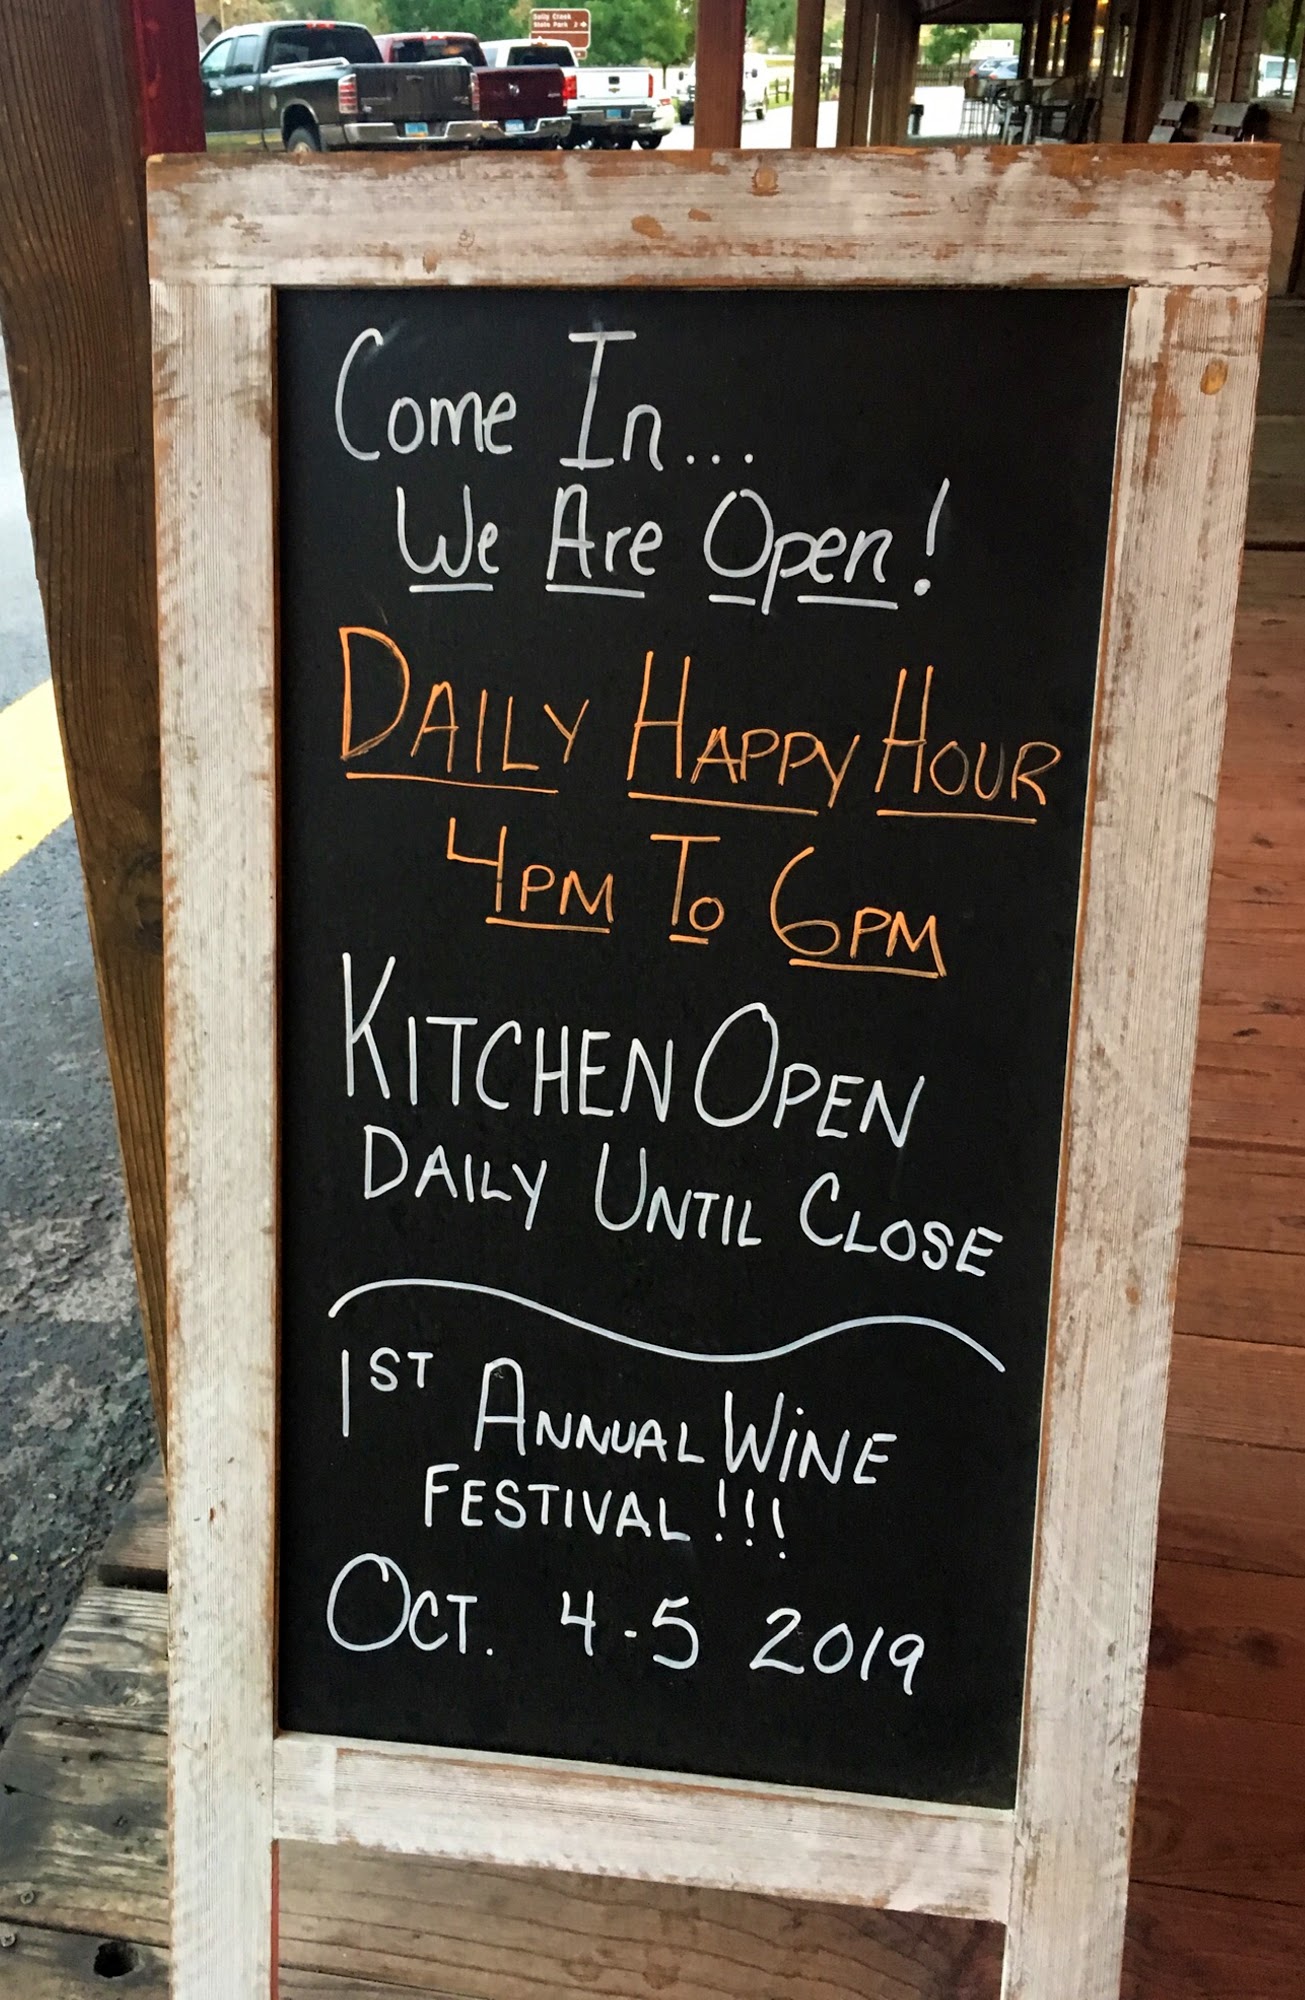 Sully Creek
State Park 2
Come In...
We Are Open!
DAILY HAPPY HOUR
4PM To 6PM
KITCHEN OPEN
DAILY UNTIL CLOSE
1ST ANNUAL WINE
FESTIVAL!!!
OCT. 4-5 2019